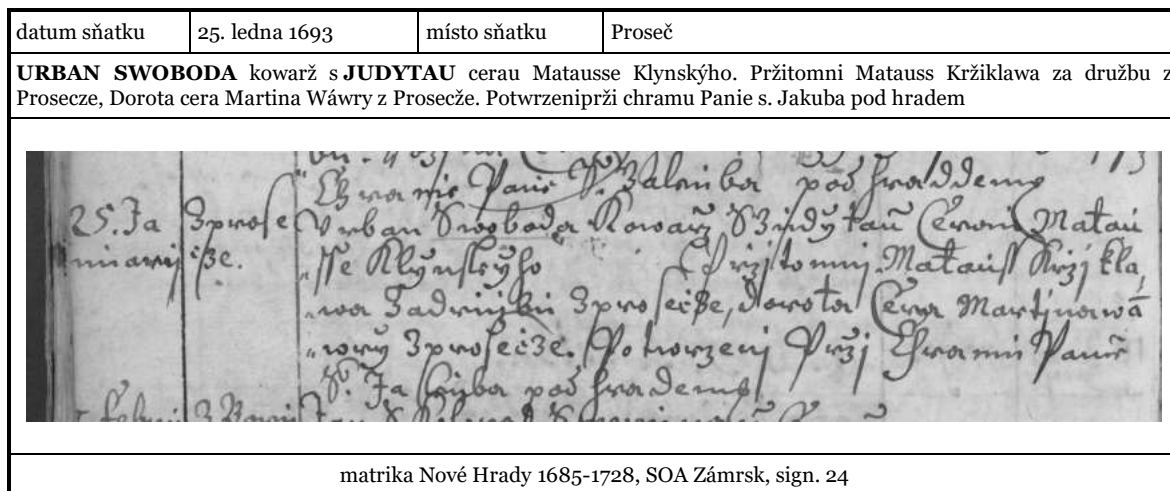 datum sňatku 25. ledna 1693 místo sňatku Proseč
URBAN SWOBODA kowarž s JUDYTAU cerau Matausse Klynskýho. Pržitomni Matauss Kržiklawa za družbu z
Prosecze, Dorota cera Martina Wáwry z Prosecže. Potwrzeniprži chramu Panie s. Jakuba pod hradem
Panie S. Jakuba pod hraddem
25. Ja zprose Vrban Swoboda Kowarž Szudytau Cerau Matau
nuarij cze. sse Klynskyho Pržitomnj Matauss Kržikla
wa zadružbu zprosecže, dorota Cera Martinawá
wry zprosecze. Potwrzenj Pržj Chramu Panie
S. Jakuba pod hradem
matrika Nové Hrady 1685-1728, SOA Zámrsk, sign. 24